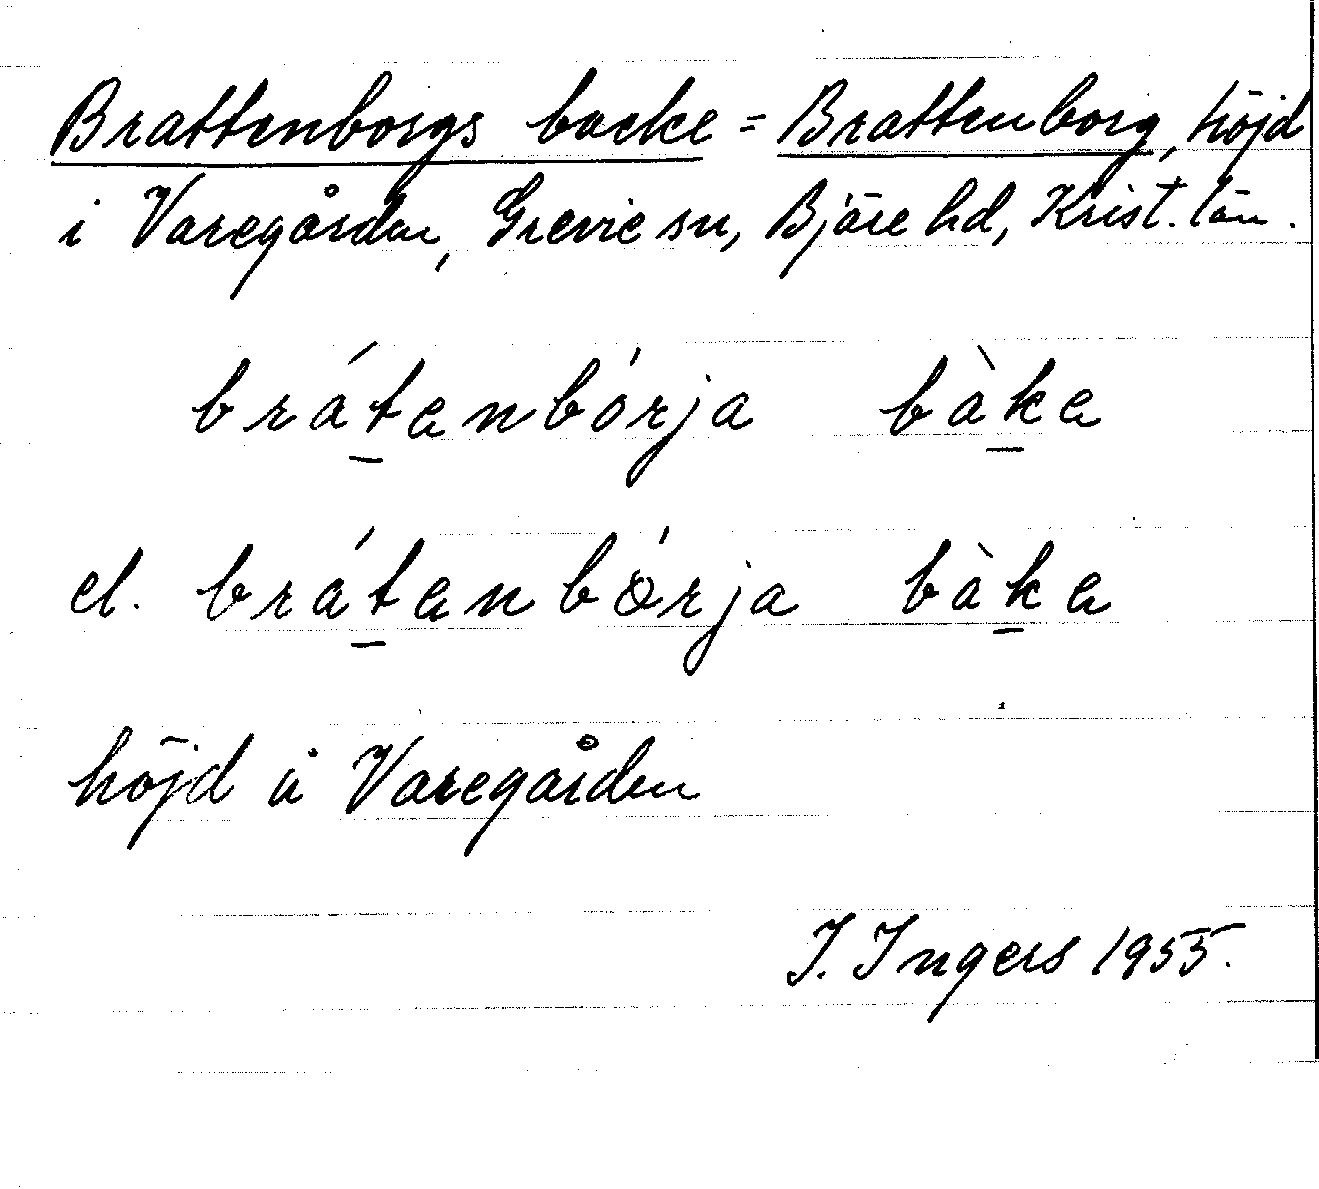 Brattenborgs backe = Brattenborg, höjd
i Varegården, Grevie sn, Bjäre hd, Krist. län.
brátanbórja bàka
el. brátanbórja bàka
höjd å Varegården
I. Ingers 1955.